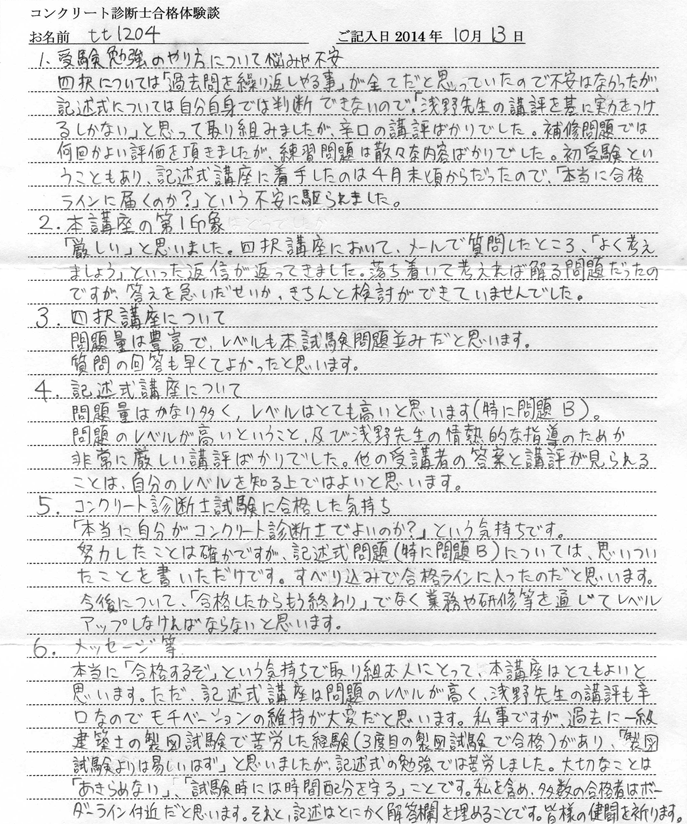 コンクリート診断士合格体験談
お名前 tt1204 ご記入日 2014年 10月 13日
1. 受験勉強のやり方について悩みや不安
四択については「過去問を繰り返しやる事」が全てだと思っていたので不安はなかったが、
記述式については自分自身では判断できないので、「浅野先生の講評を基に実力をつけ
るしかない」と思って取り組みましたが、辛口の講評ばかりでした。補修問題では
何回かよい評価を頂きましたが、練習問題は散々な内容ばかりでした。初受験とい
うこともあり、記述式講座に着手したのは4月末頃からだったので、「本当に合格
ラインに届くのか?」という不安に駆られました。
2. 本講座の第1印象
「厳しい」と思いました。四択講座において、メールで質問したところ、「よく考え
ましょう」といった返信が返ってきました。落ち着いて考えれば解る問題だったの
ですが、答えを急いだせいか、きちんと検討ができていませんでした。
3. 四択講座について
問題量は豊富で、レベルも本試験問題並みだと思います。
質問の回答も早くてよかったと思います。
4. 記述式講座について
問題量はかなり多く、レベルはとても高いと思います(特に問題B)。
問題のレベルが高いということ、及び浅野先生の情熱的な指導のためか
非常に厳しい講評ばかりでした。他の受講者の答案と講評が見られる
ことは、自分のレベルを知る上ではよいと思います。
5. コンクリート診断士試験に合格した気持ち
「本当に自分がコンクリート診断士でよいのか?」という気持ちです。
努力したことは確かですが、記述式問題(特に問題B)については、思いつい
たことを書いただけです。すべり込みで合格ラインに入ったのだと思います。
今後について、「合格したからもう終わり」でなく業務や研修等を通じてレベル
アップしなければならないと思います。
6. メッセージ等
本当に「合格するぞ」という気持ちで取り組む人にとって、本講座はとてもよいと
思います。ただ、記述式講座は問題のレベルが高く、浅野先生の講評も辛
口なのでモチベーションの維持が大変だと思います。私事ですが、過去に一級
建築士の製図試験で苦労した経験(3度目の製図試験で合格)があり、「製図
試験よりは易しいはず」と思いましたが、記述式の勉強では苦労しました。大切なことは
「あきらめない」、「試験時には時間配分を守る」ことです。私を含め、多数の合格者はボー
ダーライン付近だと思います。それと、記述はとにかく解答欄を埋めることです。皆様の健闘を祈ります。